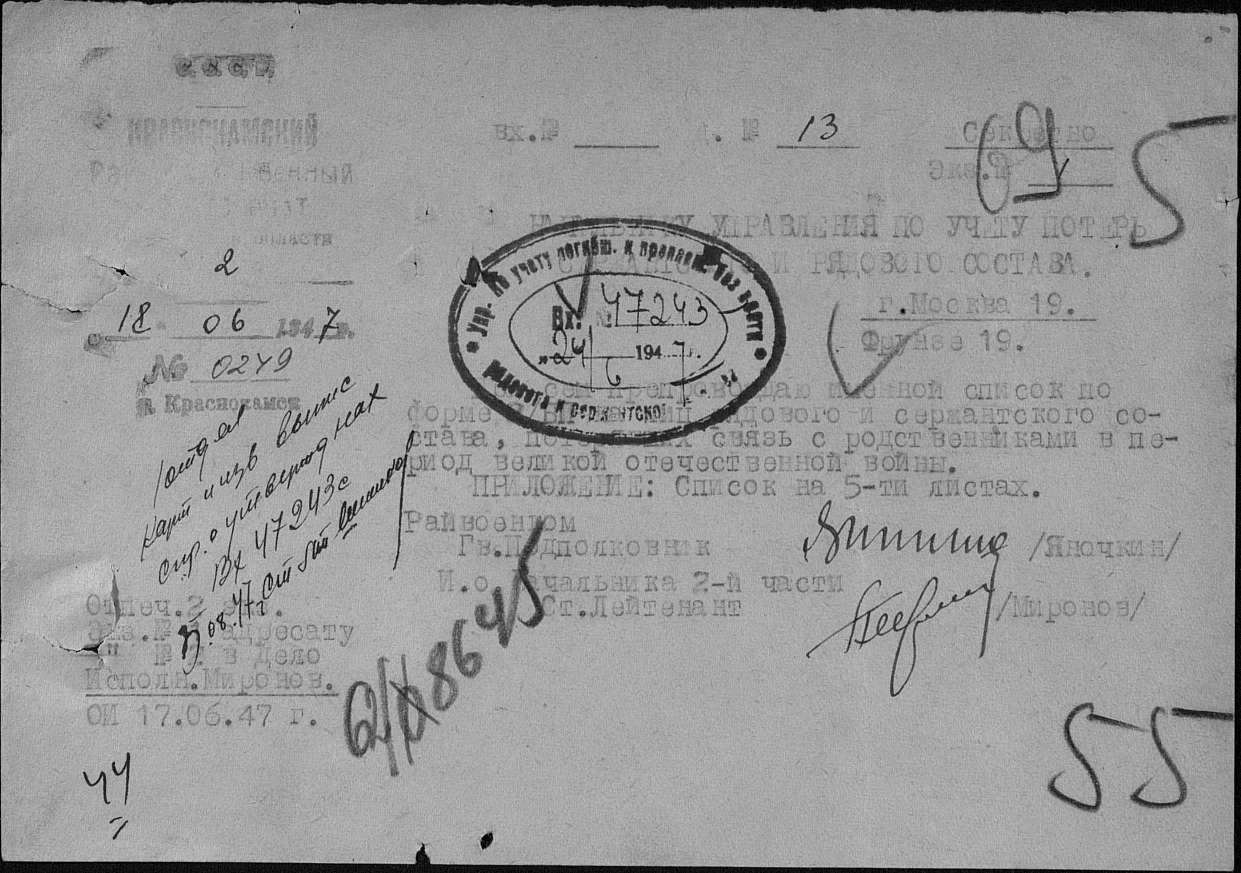 СССР
КРАСНОКАМСКИЙ
области
2
18 06 1947 г.
№ 0249
г. Краснокамск
вх.№ д. № 13
Секретно
Экз.№
5
НАЧАЛЬНИКУ УПРАВЛЕНИЯ ПО УЧЕТУ ПОТЕРЬ
И РЯДОВОГО СОСТАВА.
г.Москва 19.
Фрунзе 19.
Упр. по учету погибш. и пропавш. без вести
рядового и сержантского
Вх. № 47243
"24" 6 1947 г.
сем препровождаю именной список по
форме рядового и сержантского со-
става, связь с родственниками в пе-
риод великой отечественной войны.
ПРИЛОЖЕНИЕ: Список на 5-ти листах.
Райвоенком
Гв.Подполковник /Яночкин/
И.о.Начальника 2-й части
Ст.Лейтенант /Миронов/
карт и изв
Вх 47243с
08.47г
Отпеч.2 экз.
Экз.№ 1 адресату
" № 2 в Дело
Исполн.Миронов.
ОИ 17.06.47 г.
68645
44
55